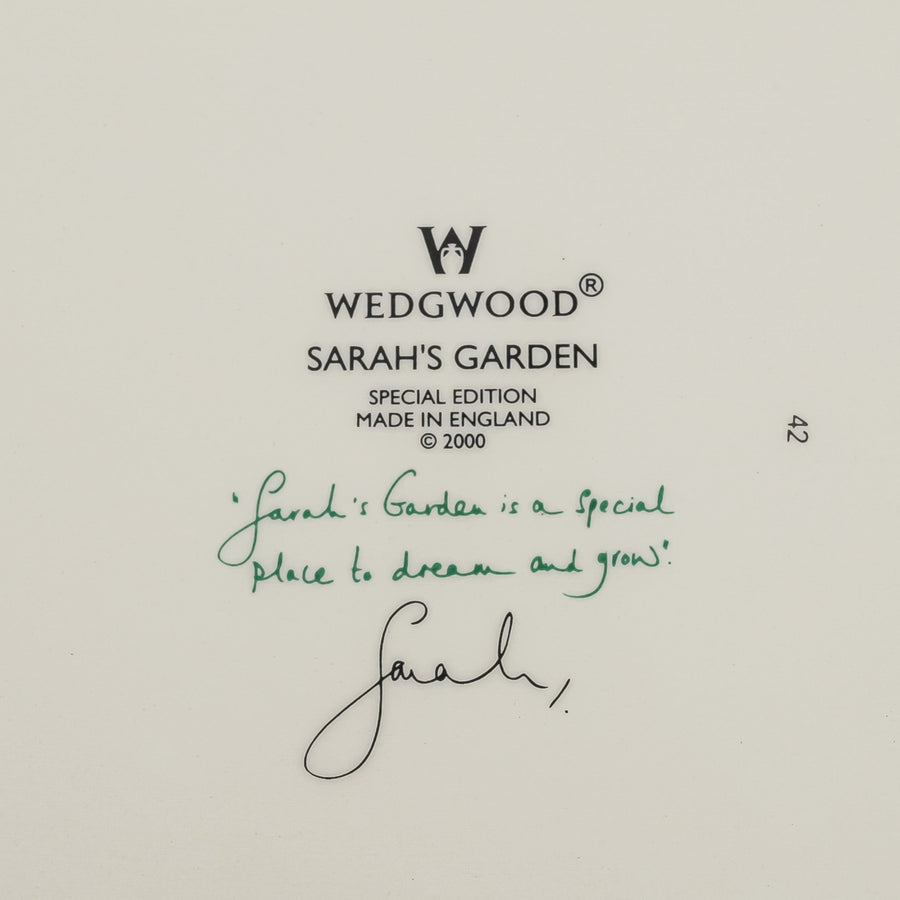 W
WEDGWOOD®
SARAH'S GARDEN
SPECIAL EDITION
MADE IN ENGLAND
© 2000
42
'Sarah's Garden is a special
place to dream and grow'.
Sarah